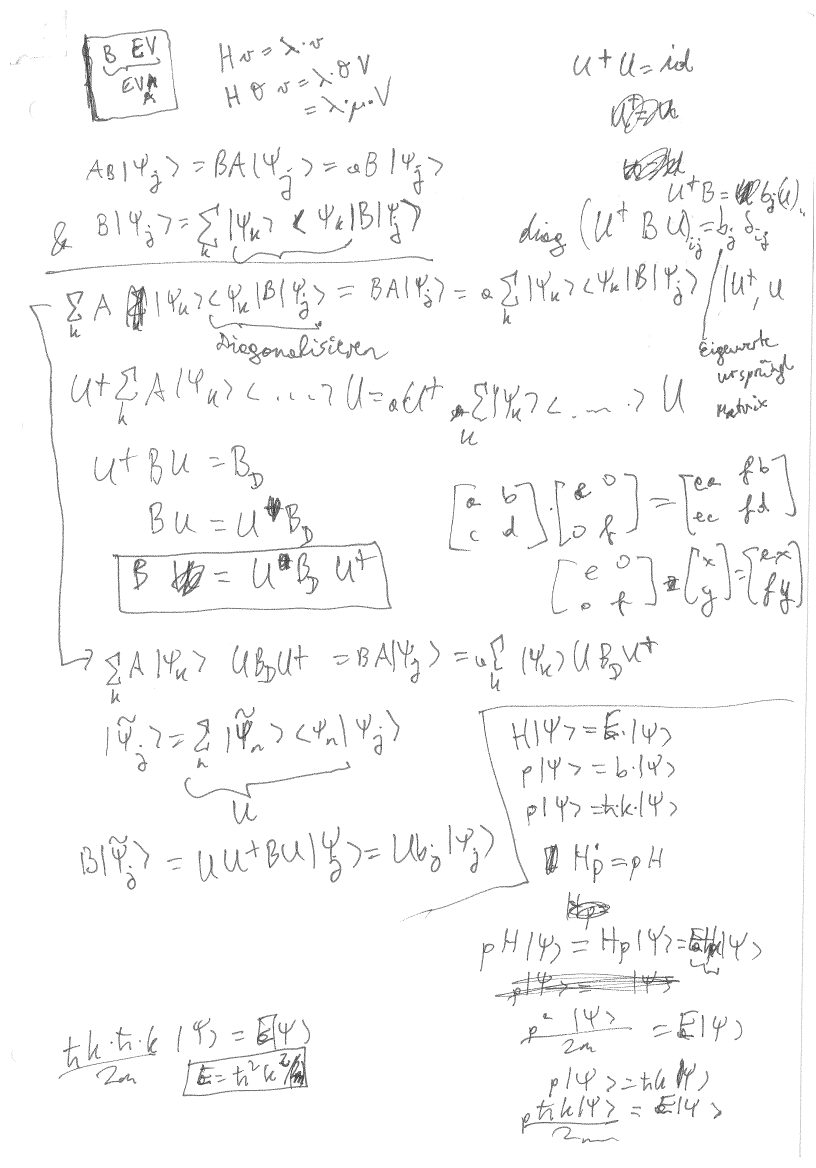 B EV
EV
A
H v = λ·v
H θ v = λ·θ V
= λ·μ·V
U† U = id
AB|Ψ_j> = BA|Ψ_j> = aB|Ψ_j>
U†B = b_j(U)
& B|Ψ_j> = Σ_k |Ψ_k> <Ψ_k|B|Ψ_j>
diag (U† B U)_ij = b_j δ_ij
Σ_k A |Ψ_k> <Ψ_k|B|Ψ_j> = BA|Ψ_j> = a Σ_k |Ψ_k> <Ψ_k|B|Ψ_j> / |U†, U
Diagonalisieren
Eigenwerte
ursprüngl
Matrix
U† Σ_k A|Ψ_k> <....> U = a U† Σ_k |Ψ_k> <.....> U
U† B U = B_D
B U = U B_D
B = U B_D U†
[a b; c d] · [e 0; 0 f] = [ea fb; ec fd]
[e 0; 0 f] · [x; y] = [ex; fy]
→ Σ_k A|Ψ_k> U B_D U† = BA|Ψ_j> = a Σ_k |Ψ_k> U B_D U†
|Ψ̃_j> = Σ_n |Ψ̃_n> <Ψ_n|Ψ_j>
U
B|Ψ̃_j> = U U† B U |Ψ_j> = U b_j |Ψ_j>
H|Ψ> = E·|Ψ>
p|Ψ> = b·|Ψ>
p|Ψ> = ħk·|Ψ>
Hp = pH
pH|Ψ> = Hp|Ψ> = |Ψ>
p² |Ψ> / 2m = E|Ψ>
p|Ψ> = ħk|Ψ>
p ħk|Ψ> / 2m = E|Ψ>
ħk·ħ·k / 2m |Ψ> = E|Ψ>
E = ħ² k² / 2m